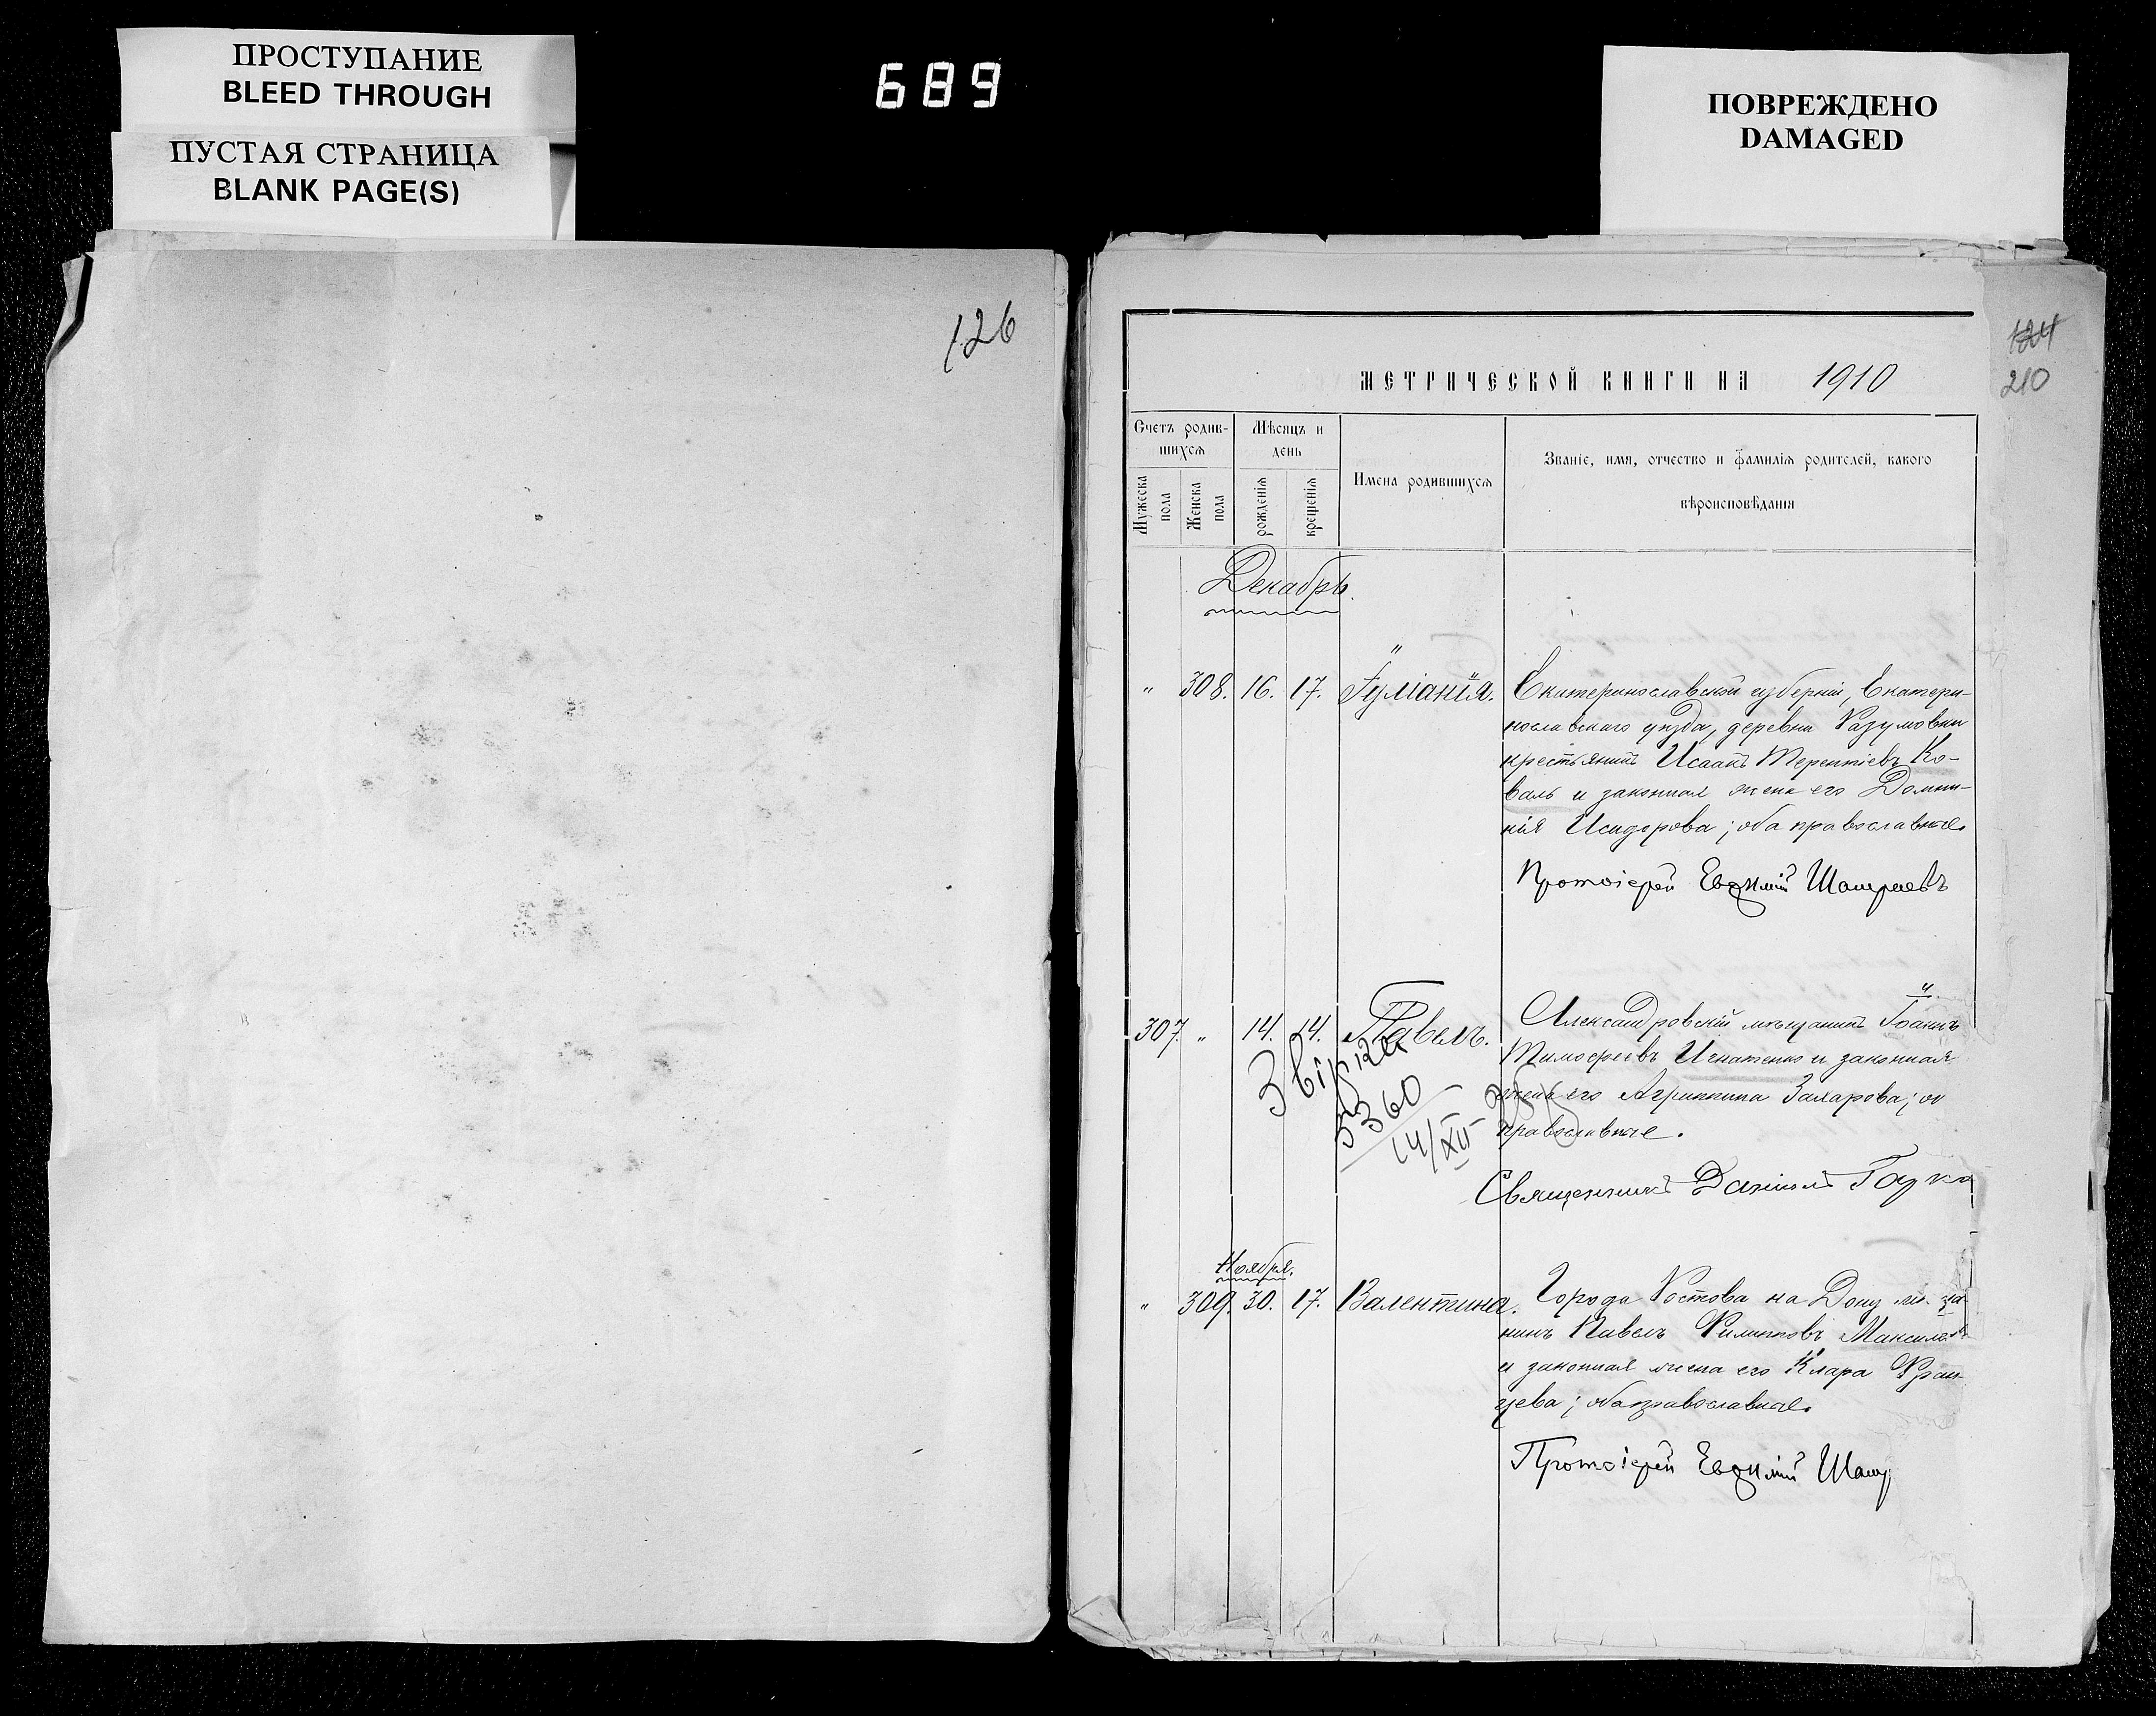 ПРОСТУПАНИЕ
BLEED THROUGH
ПУСТАЯ СТРАНИЦА
BLANK PAGE(S)
689
ПОВРЕЖДЕНО
DAMAGED
126
124
210
МЕТРИЧЕСКОЙ КНИГИ НА 1910
Счетъ родив-
шихся
Мужеска пола
Женска пола
Мѣсяцъ и
день
рожденія
крещенія
Имена родившихся
Званіе, имя, отчество и фамилія родителей, какого
вѣроисповѣданія
Декабрь.
" 308. 16. 17. Іуліанія. Екатеринославской губерніи, Екатери-
нославскаго уѣзда, деревни Разумовки
крестьянинъ Исаакъ Терентіевъ Ко-
валь и законная жена его Домни-
кія Исидорова; оба православные.
Протоіерей Евѳимій
307. " 14. 14. Павелъ. Александровскій мѣщанинъ Іоаннъ
Тимофеевъ Игнатенко и законная
жена его Агриппина Захарова; об
православные.
Звірка
5360
14/XII
Священникъ Даніилъ
Ноября.
" 309. 30. 17. Валентина. Города Ростова на Дону мѣ ща-
нинъ Павелъ Филипповъ
и законная жена его Клара Фран-
цева; оба православные.
Протоіерей Евѳимій